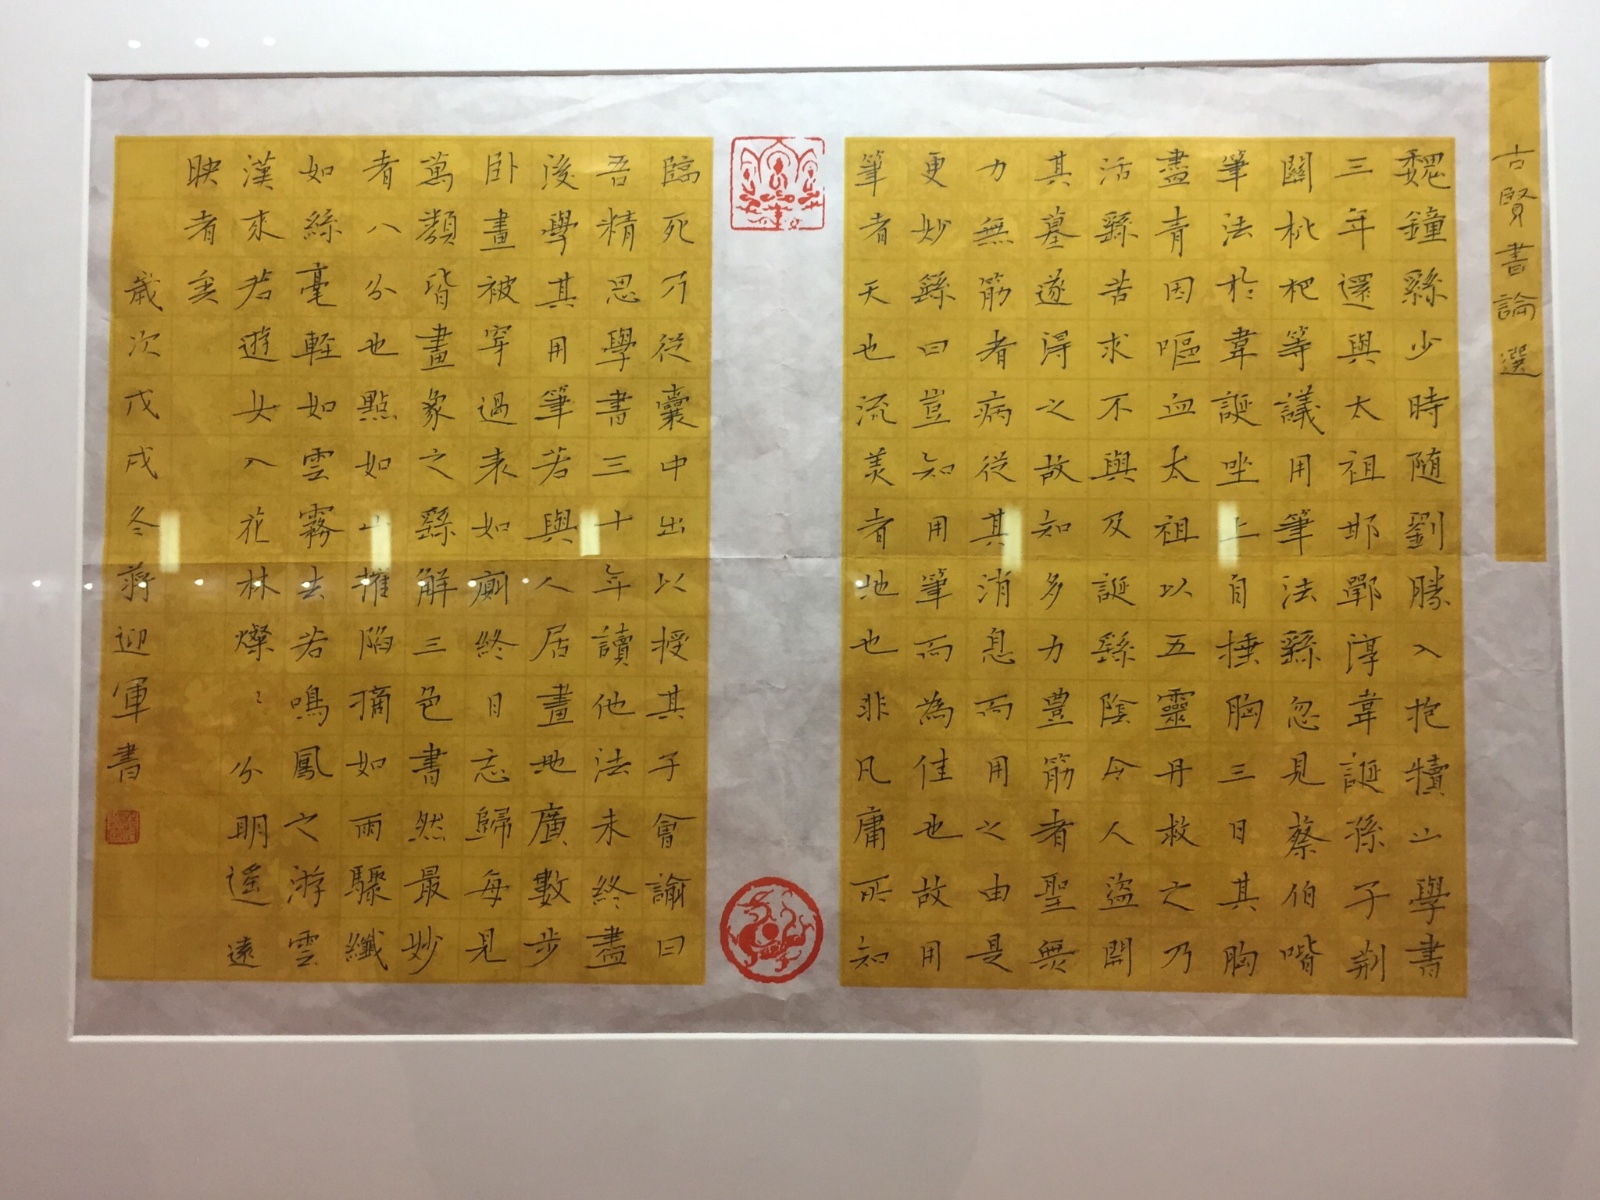 古賢書論選
魏鐘繇少時隨劉勝入抱犢山學書
三年還與太祖邯鄲淳韋誕孫子荊
關枇杷等議用筆法繇忽見蔡伯喈
筆法於韋誕坐上自捶胸三日其胸
盡青因嘔血太祖以五靈丹救之乃
活繇苦求不與及誕繇陰令人盜開
其墓遂得之故知多力豐筋者聖無
力無筋者病從其消息而用之由是
更妙繇曰豈知用筆而為佳也故用
筆者天也流美者地也非凡庸所知
臨死乃從囊中出以授其子會諭曰
吾精思學書三十年讀他法未終盡
後學其用筆若與人居畫地廣數步
卧畫被穿過表如廁終日忘歸每見
萬類皆畫象之繇解三色書然最妙
者八分也點如山摧陷摘如雨驟纖
如絲毫輕如雲霧去若鳴鳳之游雲
漢來若遊女入花林燦〻分明遥遠
映者矣
歲次戊戌冬蔣迎軍書